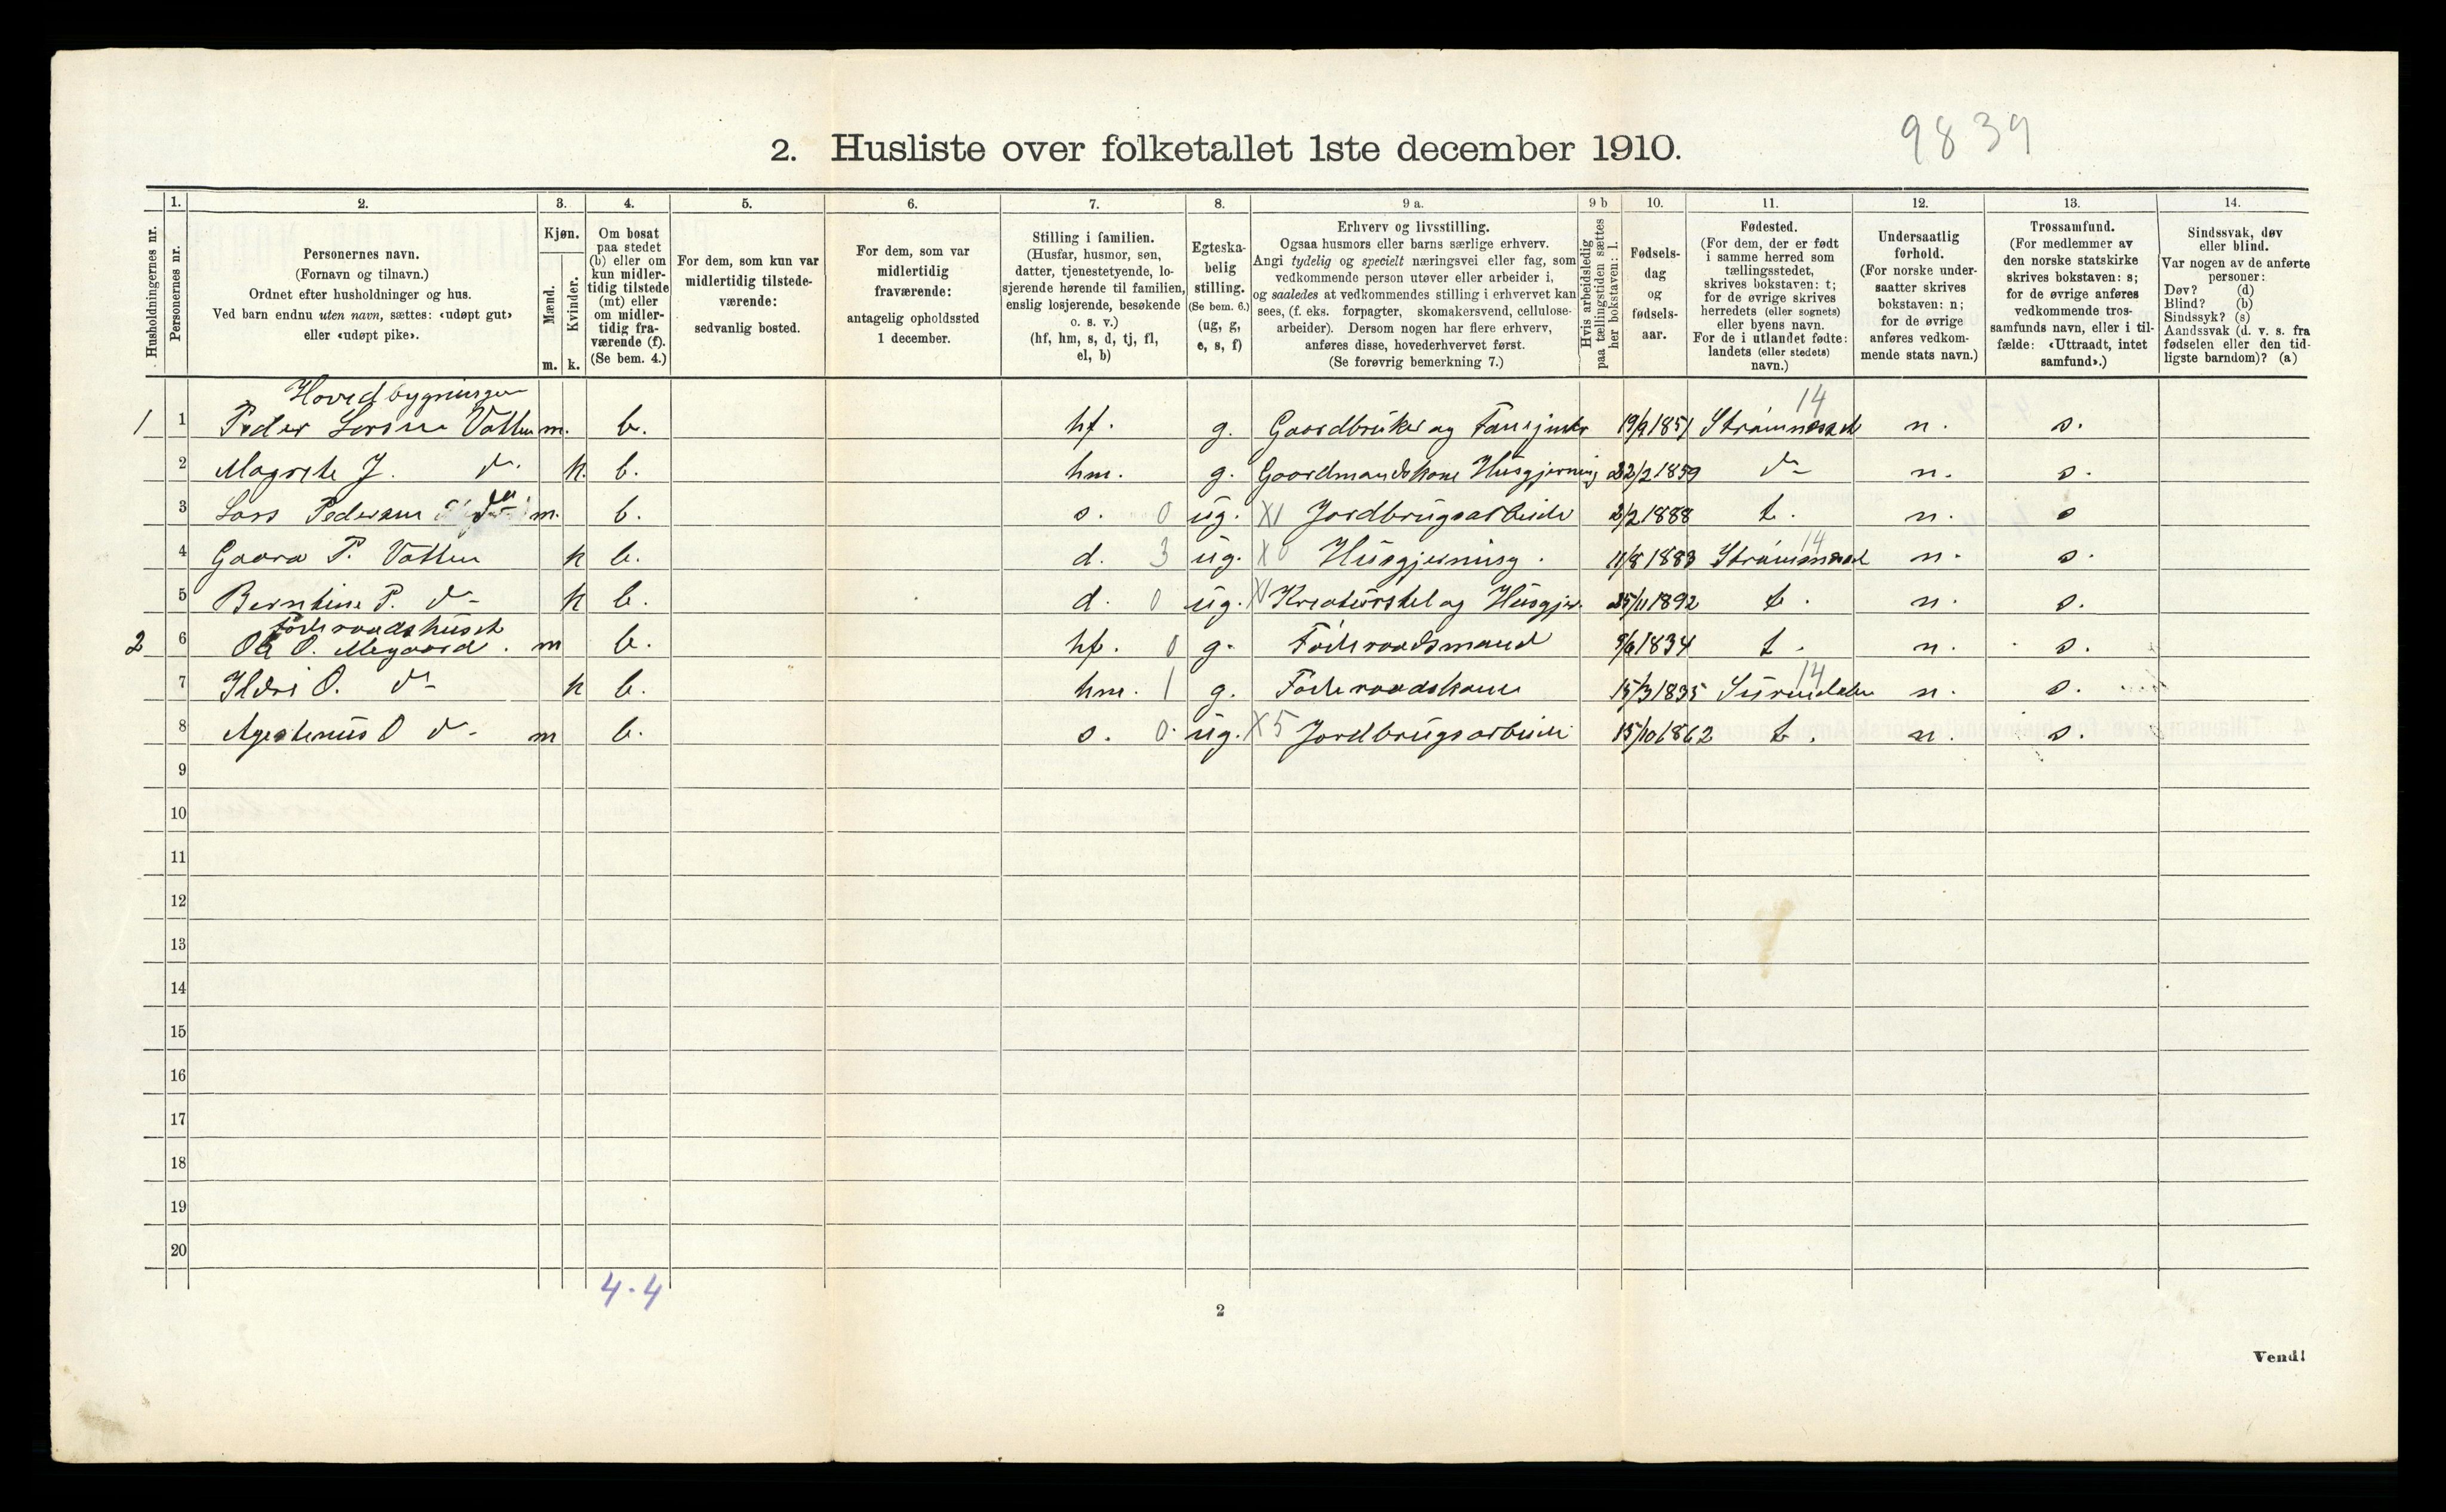 9839
2. Husliste over folketallet 1ste december 1910.
Husholdningernes nr.
1.
Personernes nr.
2.
Personernes navn.
(Fornavn og tilnavn.)
Ordnet efter husholdninger og hus.
Ved barn endnu uten navn, sættes: «udøpt gut»
eller «udøpt pike».
3.
Kjøn.
Mænd.
Kvinder.
m. k.
4.
Om bosat
paa stedet
(b) eller om
kun midler-
tidig tilstede
(mt) eller
om midler-
tidig fra-
værende (f).
(Se bem. 4.)
5.
For dem, som kun var
midlertidig tilstede-
værende:
sedvanlig bosted.
6.
For dem, som var
midlertidig
fraværende:
antagelig opholdssted
1 december.
7.
Stilling i familien.
(Husfar, husmor, søn,
datter, tjenestetyende, lo-
sjerende hørende til familien,
enslig losjerende, besøkende
o. s. v.)
(hf, hm, s, d, tj, fl,
el, b)
8.
Egteska-
belig
stilling.
(Se bem. 6.)
(ug, g,
e, s, f)
9 a.
Erhverv og livsstilling.
Ogsaa husmors eller barns særlige erhverv.
Angi tydelig og specielt næringsvei eller fag, som
vedkommende person utøver eller arbeider i,
og saaledes at vedkommendes stilling i erhvervet kan
sees, (f. eks. forpagter, skomakersvend, cellulose-
arbeider). Dersom nogen har flere erhverv,
anføres disse, hovederhvervet først.
(Se forøvrig bemerkning 7.)
9 b
Hvis arbeidsledig
paa tællingstiden sættes
her bokstaven: l.
10.
Fødsels-
dag
og
fødsels-
aar.
11.
Fødested.
(For dem, der er født
i samme herred som
tællingsstedet,
skrives bokstaven: t;
for de øvrige skrives
herredets (eller sognets)
eller byens navn.
For de i utlandet fødte:
landets (eller stedets)
navn.)
12.
Undersaatlig
forhold.
(For norske under-
saatter skrives
bokstaven: n;
for de øvrige
anføres vedkom-
mende stats navn.)
13.
Trossamfund.
(For medlemmer av
den norske statskirke
skrives bokstaven: s;
for de øvrige anføres
vedkommende tros-
samfunds navn, eller i til-
fælde: «Uttraadt, intet
samfund».)
14.
Sindssvak, døv
eller blind.
Var nogen av de anførte
personer:
Døv? (d)
Blind? (b)
Sindssyk? (s)
Aandssvak (d. v. s. fra
fødselen eller den tid-
ligste barndom)? (a)
Hovedbygningen 14
1 1 Peder Larsen Vatten m. b. hf. g. Gaardbruker og 19/9 1851 n. s.
2 Magrete J. do. k. b. hm. g. Gaardmandskone Husgjerning 22/2 1859 do n. s.
3 Lars Pedersen do m. b. s. 0 ug. X1 Jordbrugsarbeide 2/2 1888 t. n. s
14
4 P. Vatten k b. d. 3 ug. X0 Husgjerning. 11/8 n. s.
5 Berntine P. do k b. d. 0 ug. Kreaturstel og Husgjer. 25/11 1892 t. n. s.
Føderaadshuset
2 6 Ole O. Megaard. m b. hf. 0 g. Føderaadsmand 9/6 1834 t. n. s.
14
7 Ildri O. do k b. hm. 1 g. Føderaadskone 15/3 1835 Surendalen n. s.
8 O do m b. s. 0. ug. X5 Jordbrugsarbeide 15/10 1862 t. n. s.
9
10
11
12
13
14
15
16
17
18
19
20
4.4
2
Vend!